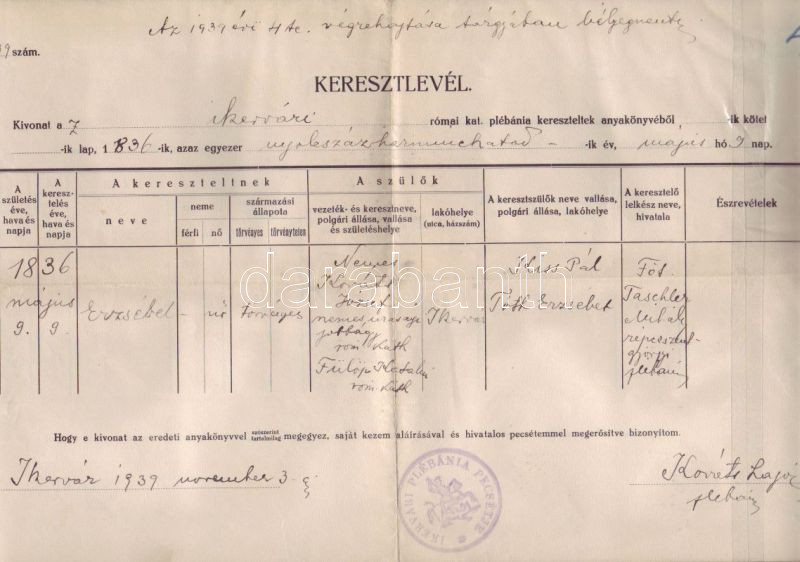 Az 1939 évi 4 tc. végrehajtása tárgyában bélyegmentes
39 szám.
KERESZTLEVÉL.
Kivonat a z ikervári római kat. plébánia kereszteltek anyakönyvéből, -ik kötet
-ik lap, 1 836 -ik, azaz egyezer nyolcszázharminchatod - ik év, május hó 9 nap.
A születés éve, hava és napja
A keresztelés éve, hava és napja
A kereszteltnek
neve
neme
férfi nő
származási állapota
törvényes törvénytelen
A szülők
vezeték- és keresztneve, polgári állása, vallása és születéshelye
lakóhelye (utca, házszám)
A keresztszülők neve vallása, polgári állása, lakóhelye
A keresztelő lelkész neve, hivatala
Észrevételek
1836
május
9. 9.
Erzsébet
- nő
törvényes
Nemes
Kováts
József
nemes urasági
jobbágy
rom. kath
Fülöp Katalin
rom. kath
Ikervár
Kiss Pál
Tóth Erzsébet
Főt.
Taschler
Mihály
répceszent-
györgyi
plébános
darabanth
Hogy e kivonat az eredeti anyakönyvvel szószerint tartalmilag megegyez, saját kezem aláírásával és hivatalos pecsétemmel megerősítve bizonyítom.
Ikervár 1939 november 3.
IKERVÁRI PLÉBÁNIA PECSÉTJE
Kováts Lajos
plébános